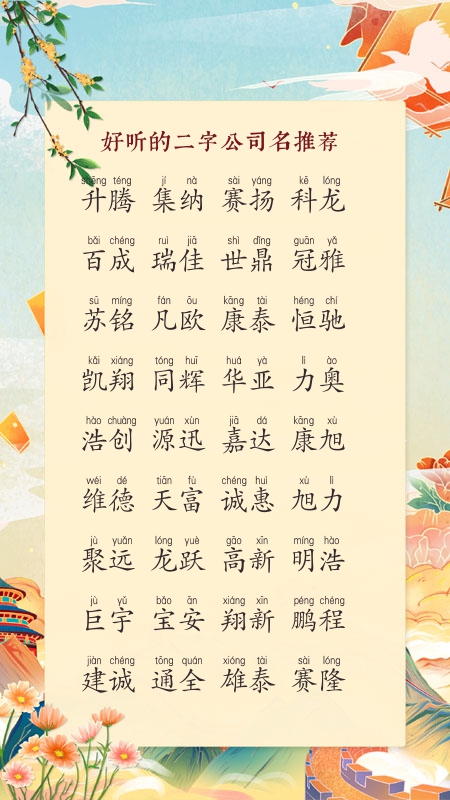 好听的二字公司名推荐
shēng téng jí nà sài yáng kē lóng
升腾 集纳 赛扬 科龙
bǎi chéng ruì jiā shì dǐng guān yǎ
百成 瑞佳 世鼎 冠雅
sū míng fán ōu kāng tài héng chí
苏铭 凡欧 康泰 恒驰
kǎi xiáng tóng huī huá yà lì ào
凯翔 同辉 华亚 力奥
hào chuàng yuán xùn jiā dá kāng xù
浩创 源迅 嘉达 康旭
wéi dé tiān fù chéng huì xù lì
维德 天富 诚惠 旭力
jù yuǎn lóng yuè gāo xīn míng hào
聚远 龙跃 高新 明浩
jù yǔ bǎo ān xiáng xīn péng chéng
巨宇 宝安 翔新 鹏程
jiàn chéng tōng quán xióng tài sài lóng
建诚 通全 雄泰 赛隆